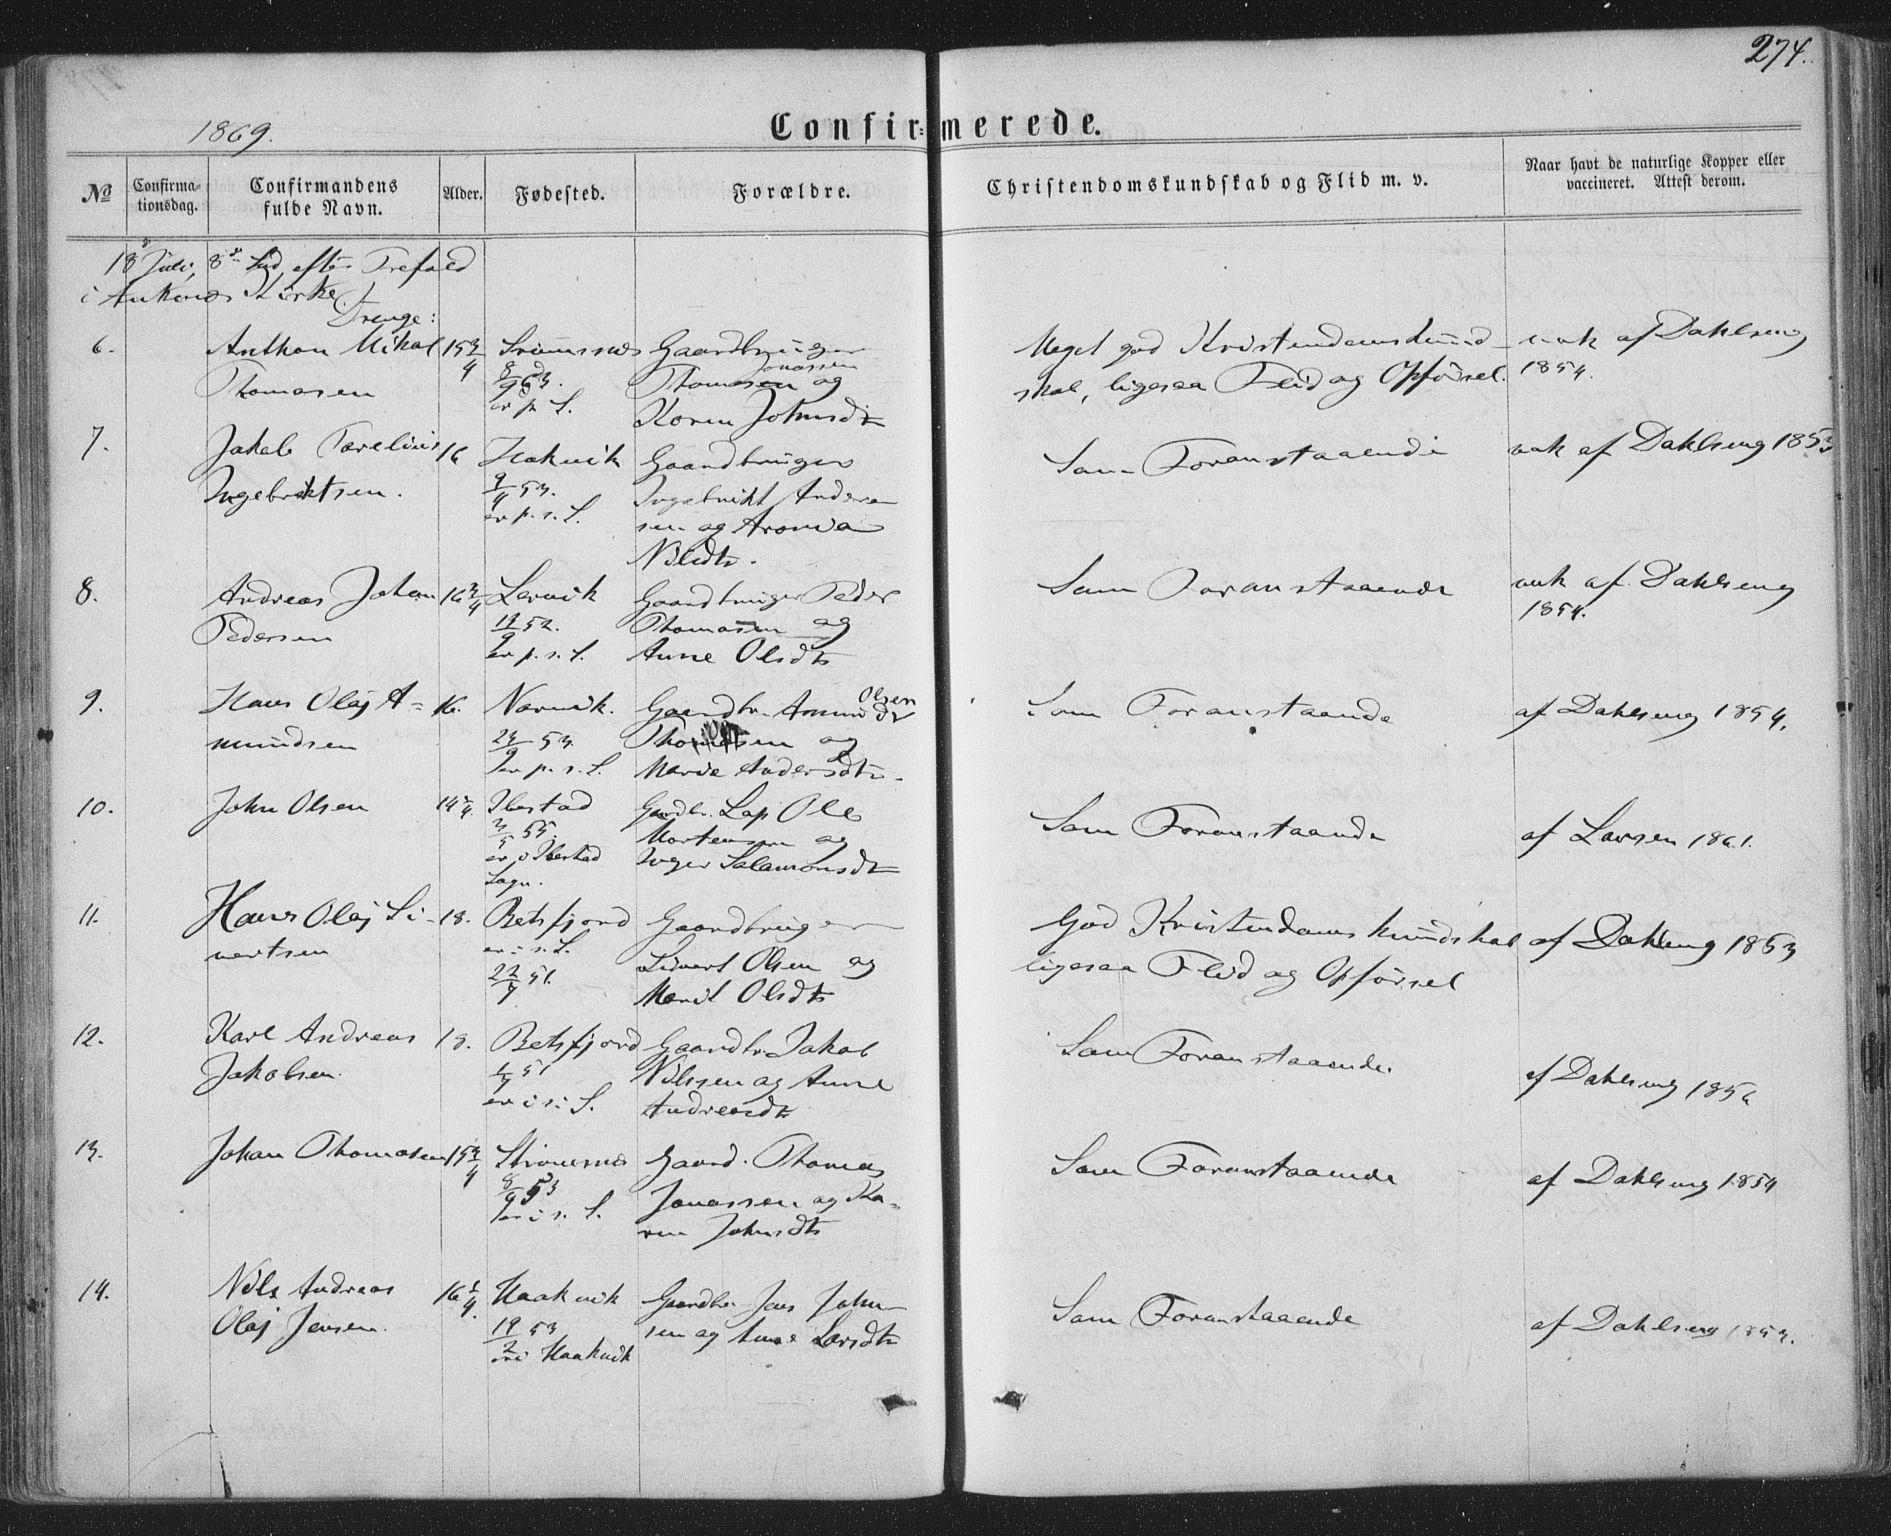 274.
1869.
Confirmerede.
№
Confirma-
tionsdag.
Confirmandens
fulde Navn.
Alder.
Fødested.
Forældre.
Christendomskundskab og Flid m. v.
Naar havt de naturlige Kopper eller
vaccineret. Attest derom.
18 Juli, 8de Sød efter Trefold
i Ankenes Kirke
Drenge:
6.
Anthon Mikal
Thomasen
15 3/4
8/9 53.
Gaardbruger
Jonassen
Thomasen og
Karen Johnsdtr
Meget god Kristendomskund-
skab, ligesaa Flid og Opførsel.
vak af Dahlseng
1854.
7.
Jakob Torelius
Ingebriktsen.
16
Hakvik
9/4 53.
er p. s. S.
Gaardbruger
Ingebrikt Ander
sen og Aronia
Nilsdtr.
Som Foranstaaende
vak af Dahlseng 1853
8.
Andreas Johan
Pedersen
16 3/4
Lervik
19/9 52.
er p. s. S.
Gaardbruger Peder
Thomasen og
Anne Olsdtr
Som Foranstaaende
vak af Dahlseng
1854.
9.
Hans Olaj A=
mundsen
16.
Narvik.
24/9 53.
er p. s. S.
Gaardbr. Amund
Olsen
Thomasen og
Marie Andersdtr.
Som Foranstaande
af Dahlseng 1854.
10.
John Olsen
14 1/4.
Ibestad
3/5 55.
er i Ibestad
Sogn.
Gaardbr. Lap Ole
Mortensen og
Inger Salamonsdtr
Som Foranstaande
af Larsen 1861.
11.
Hans Olaj Si-
vertsen
18.
Betsfjord
er i s. S.
22/7 51.
Gaardbruger
Sivert Olsen og
Marit Olsdtr
God Kristendomskundskab
ligesaa Flid og Opførsel
af Dahlseng 1853
12.
Karl Andreas
Jakobsen.
18.
Betsfjord
1/7 51
er i s. S.
Gaardbr. Jakob
Nilssen og Anne
Andreasdtr
Som Foranstaaende
af Dahlseng 1856
13.
Johan Thomasen
15 3/4
8/9 53
er i s. S.
Gaard. Thomas
Jonassen og Ka-
ren Johnsdtr
Som Foranstaaende
af Dahlseng 1854
14.
Nils Andreas
Olaj Jensen.
16 1/4.
Haakvik
19/2 53
er i Haakvik
Gaardbr. Jens John-
sen og Anne Larsdtr
Som Foranstaaende
af Dahlseng 1853.